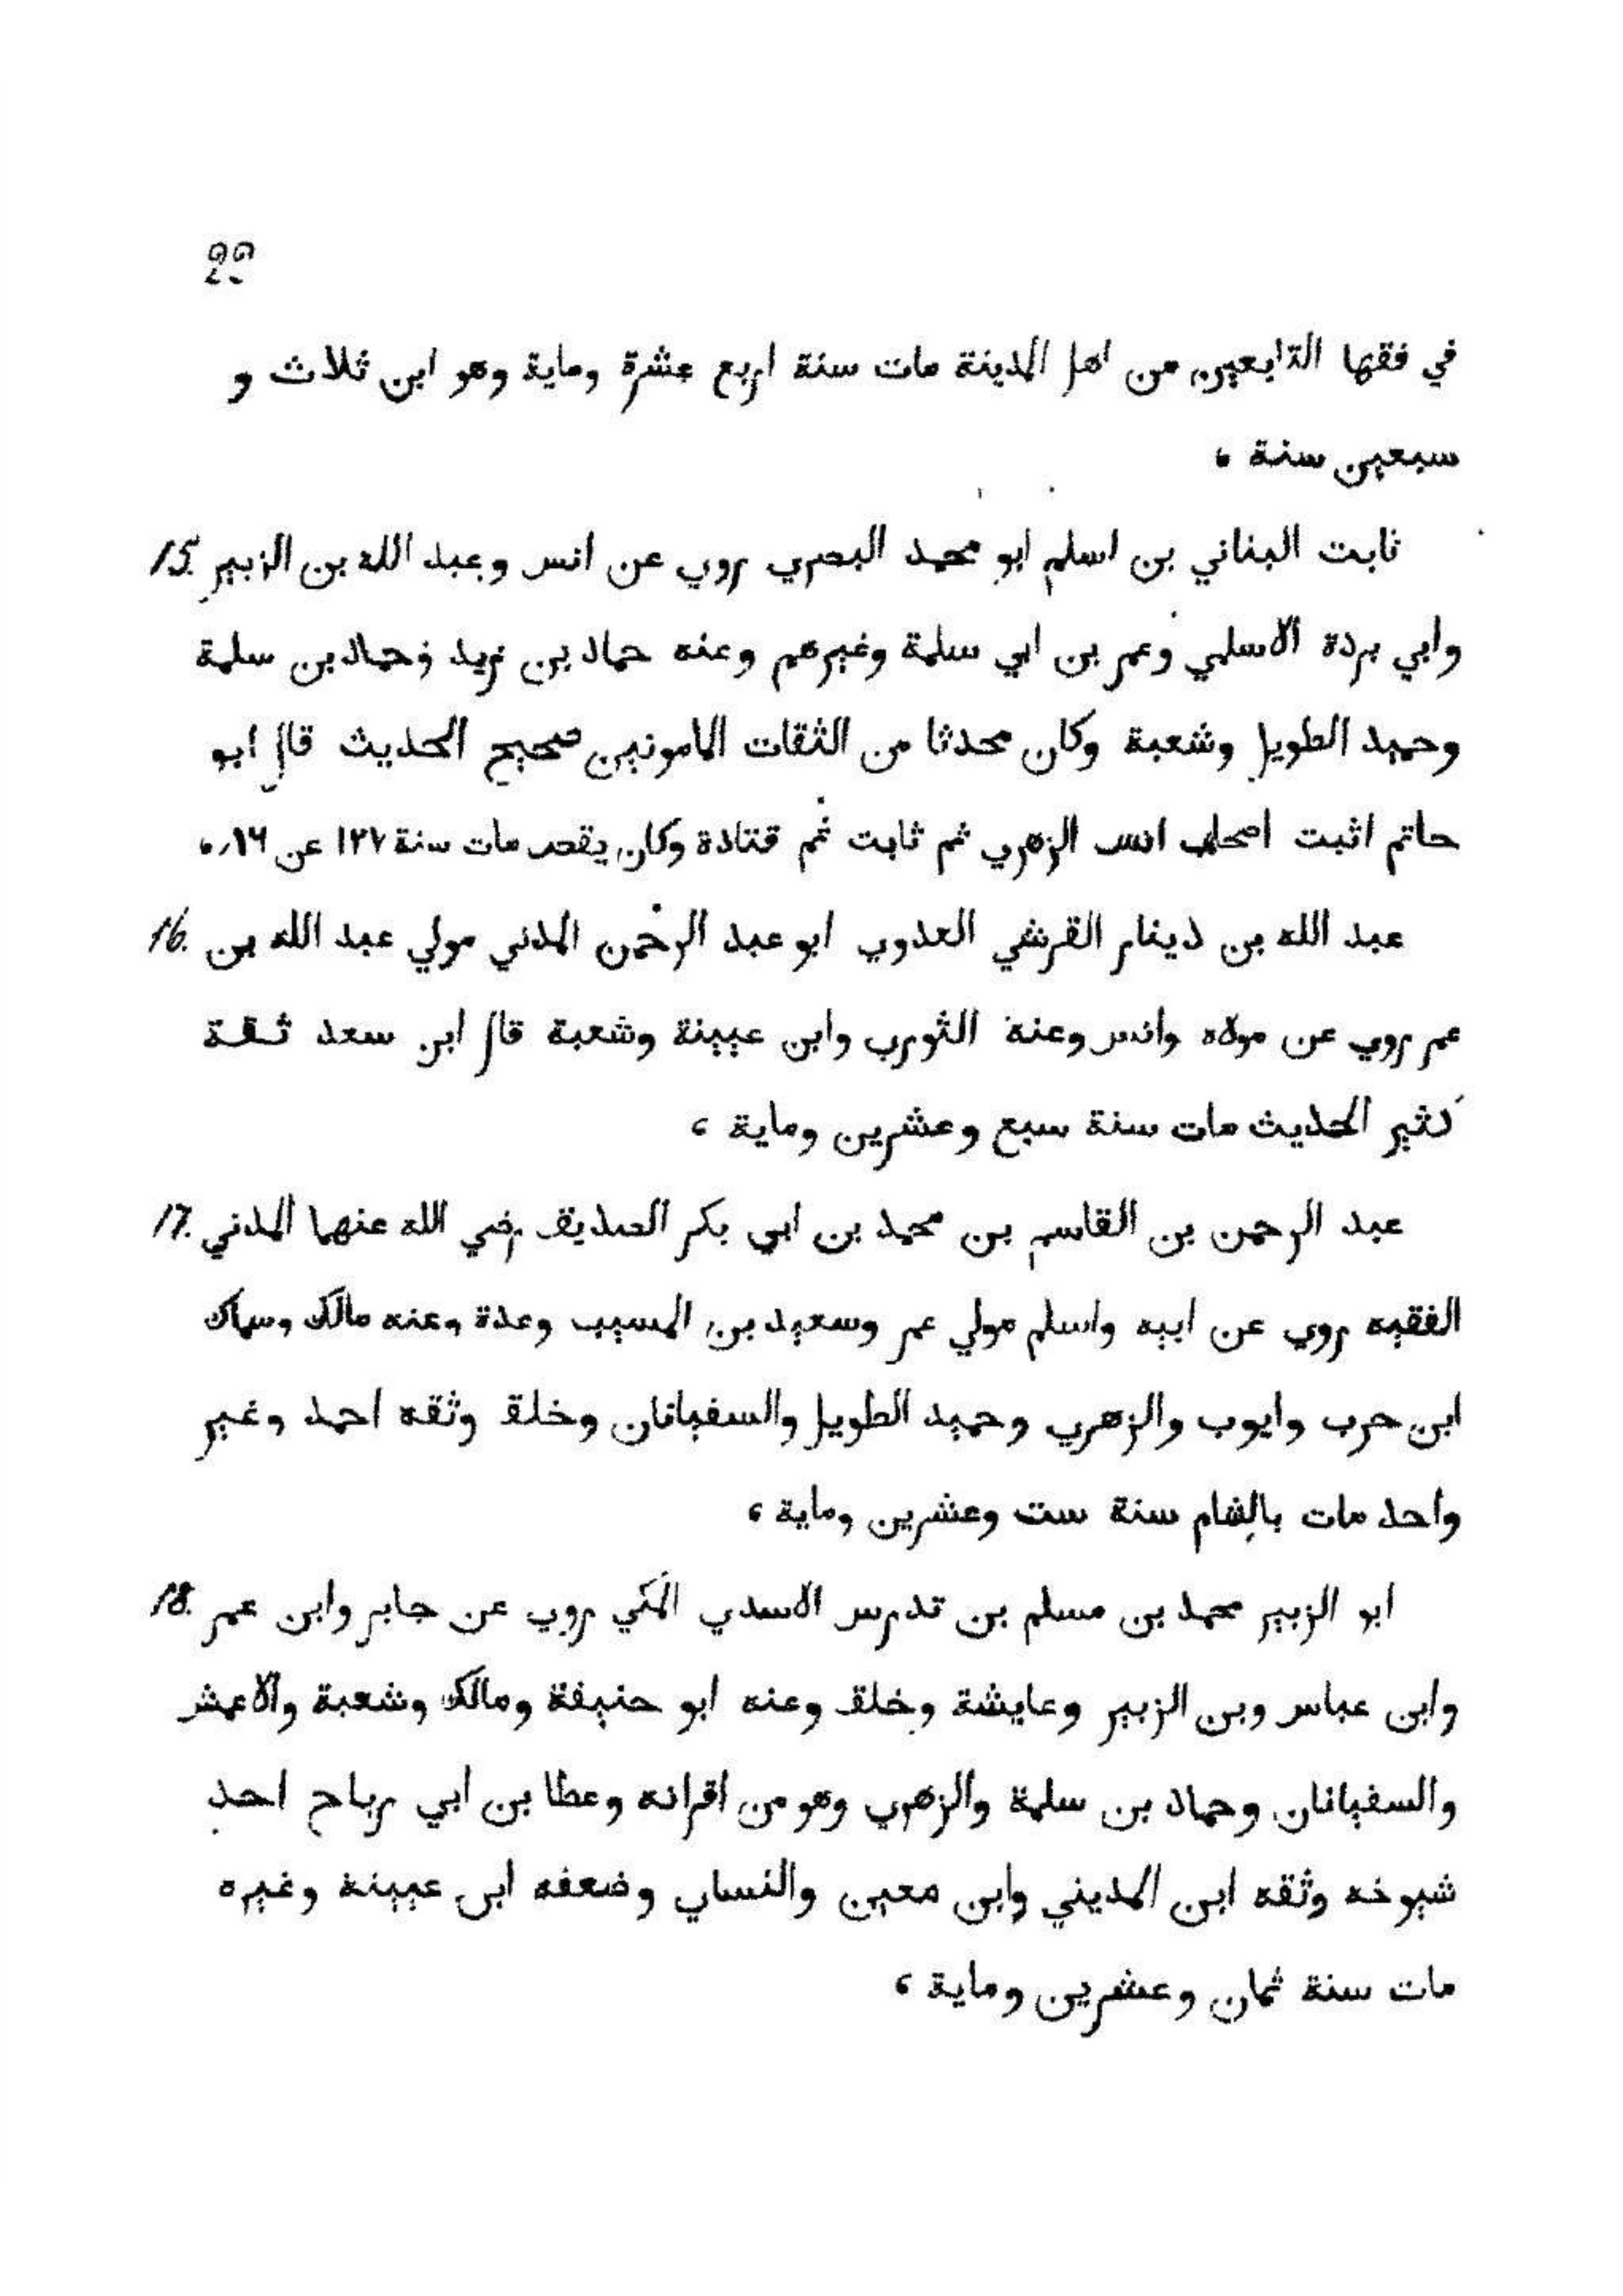 في فقها التابعين من اهل المدينة مات سنة اربع عشرة وماية وهو ابن ثلاث و
سبعين سنة ،
ثابت البناني بن اسلم ابو محمد البصري روي عن انس وعبد الله بن الزبير 15.
وابي بردة الاسلمي وعمر بن ابي سلمة وغيرهم وعنه حماد بن زيد وحماد بن سلمة
وحميد الطويل وشعبة وكان محدثا من الثقات المامونين صحيح الحديث قال ابو
حاتم اثبت اصحاب انس الزهري ثم ثابت ثم قتادة وكان يقص مات سنة ١٢٧ عن
عبد الله بن دينار القرشي العدوي ابو عبد الرحمن المدني مولي عبد الله بن 16.
عمر روي عن مولاه وانس وعنه الثوري وابن عيينة وشعبة قال ابن سعد ثقة
كثير الحديث مات سنة سبع وعشرين وماية ،
عبد الرحمن بن القاسم بن محمد بن ابي بكر الصديق رضي الله عنهما المدني 17.
الفقيه روي عن ابيه واسلم مولي عمر وسعيد بن المسيب وعدة وعنه مالك وسماك
ابن حرب وايوب والزهري وحميد الطويل والسفيانان وخلق وثقه احمد وغير
واحد مات بالشام سنة ست وعشرين وماية ،
ابو الزبير محمد بن مسلم بن تدرس الاسدي المكي روي عن جابر وابن عمر 18.
وابن عباس وبن الزبير وعايشة وخلق وعنه ابو حنيفة ومالك وشعبة والاعمش
والسفيانان وحماد بن سلمة والزهري وهو من اقرانه وعطا بن ابي رباح احد
شيوخه وثقه ابن المديني وابن معين والنساي وضعفه ابن عيينة وغيره
مات سنة ثمان وعشرين وماية ،